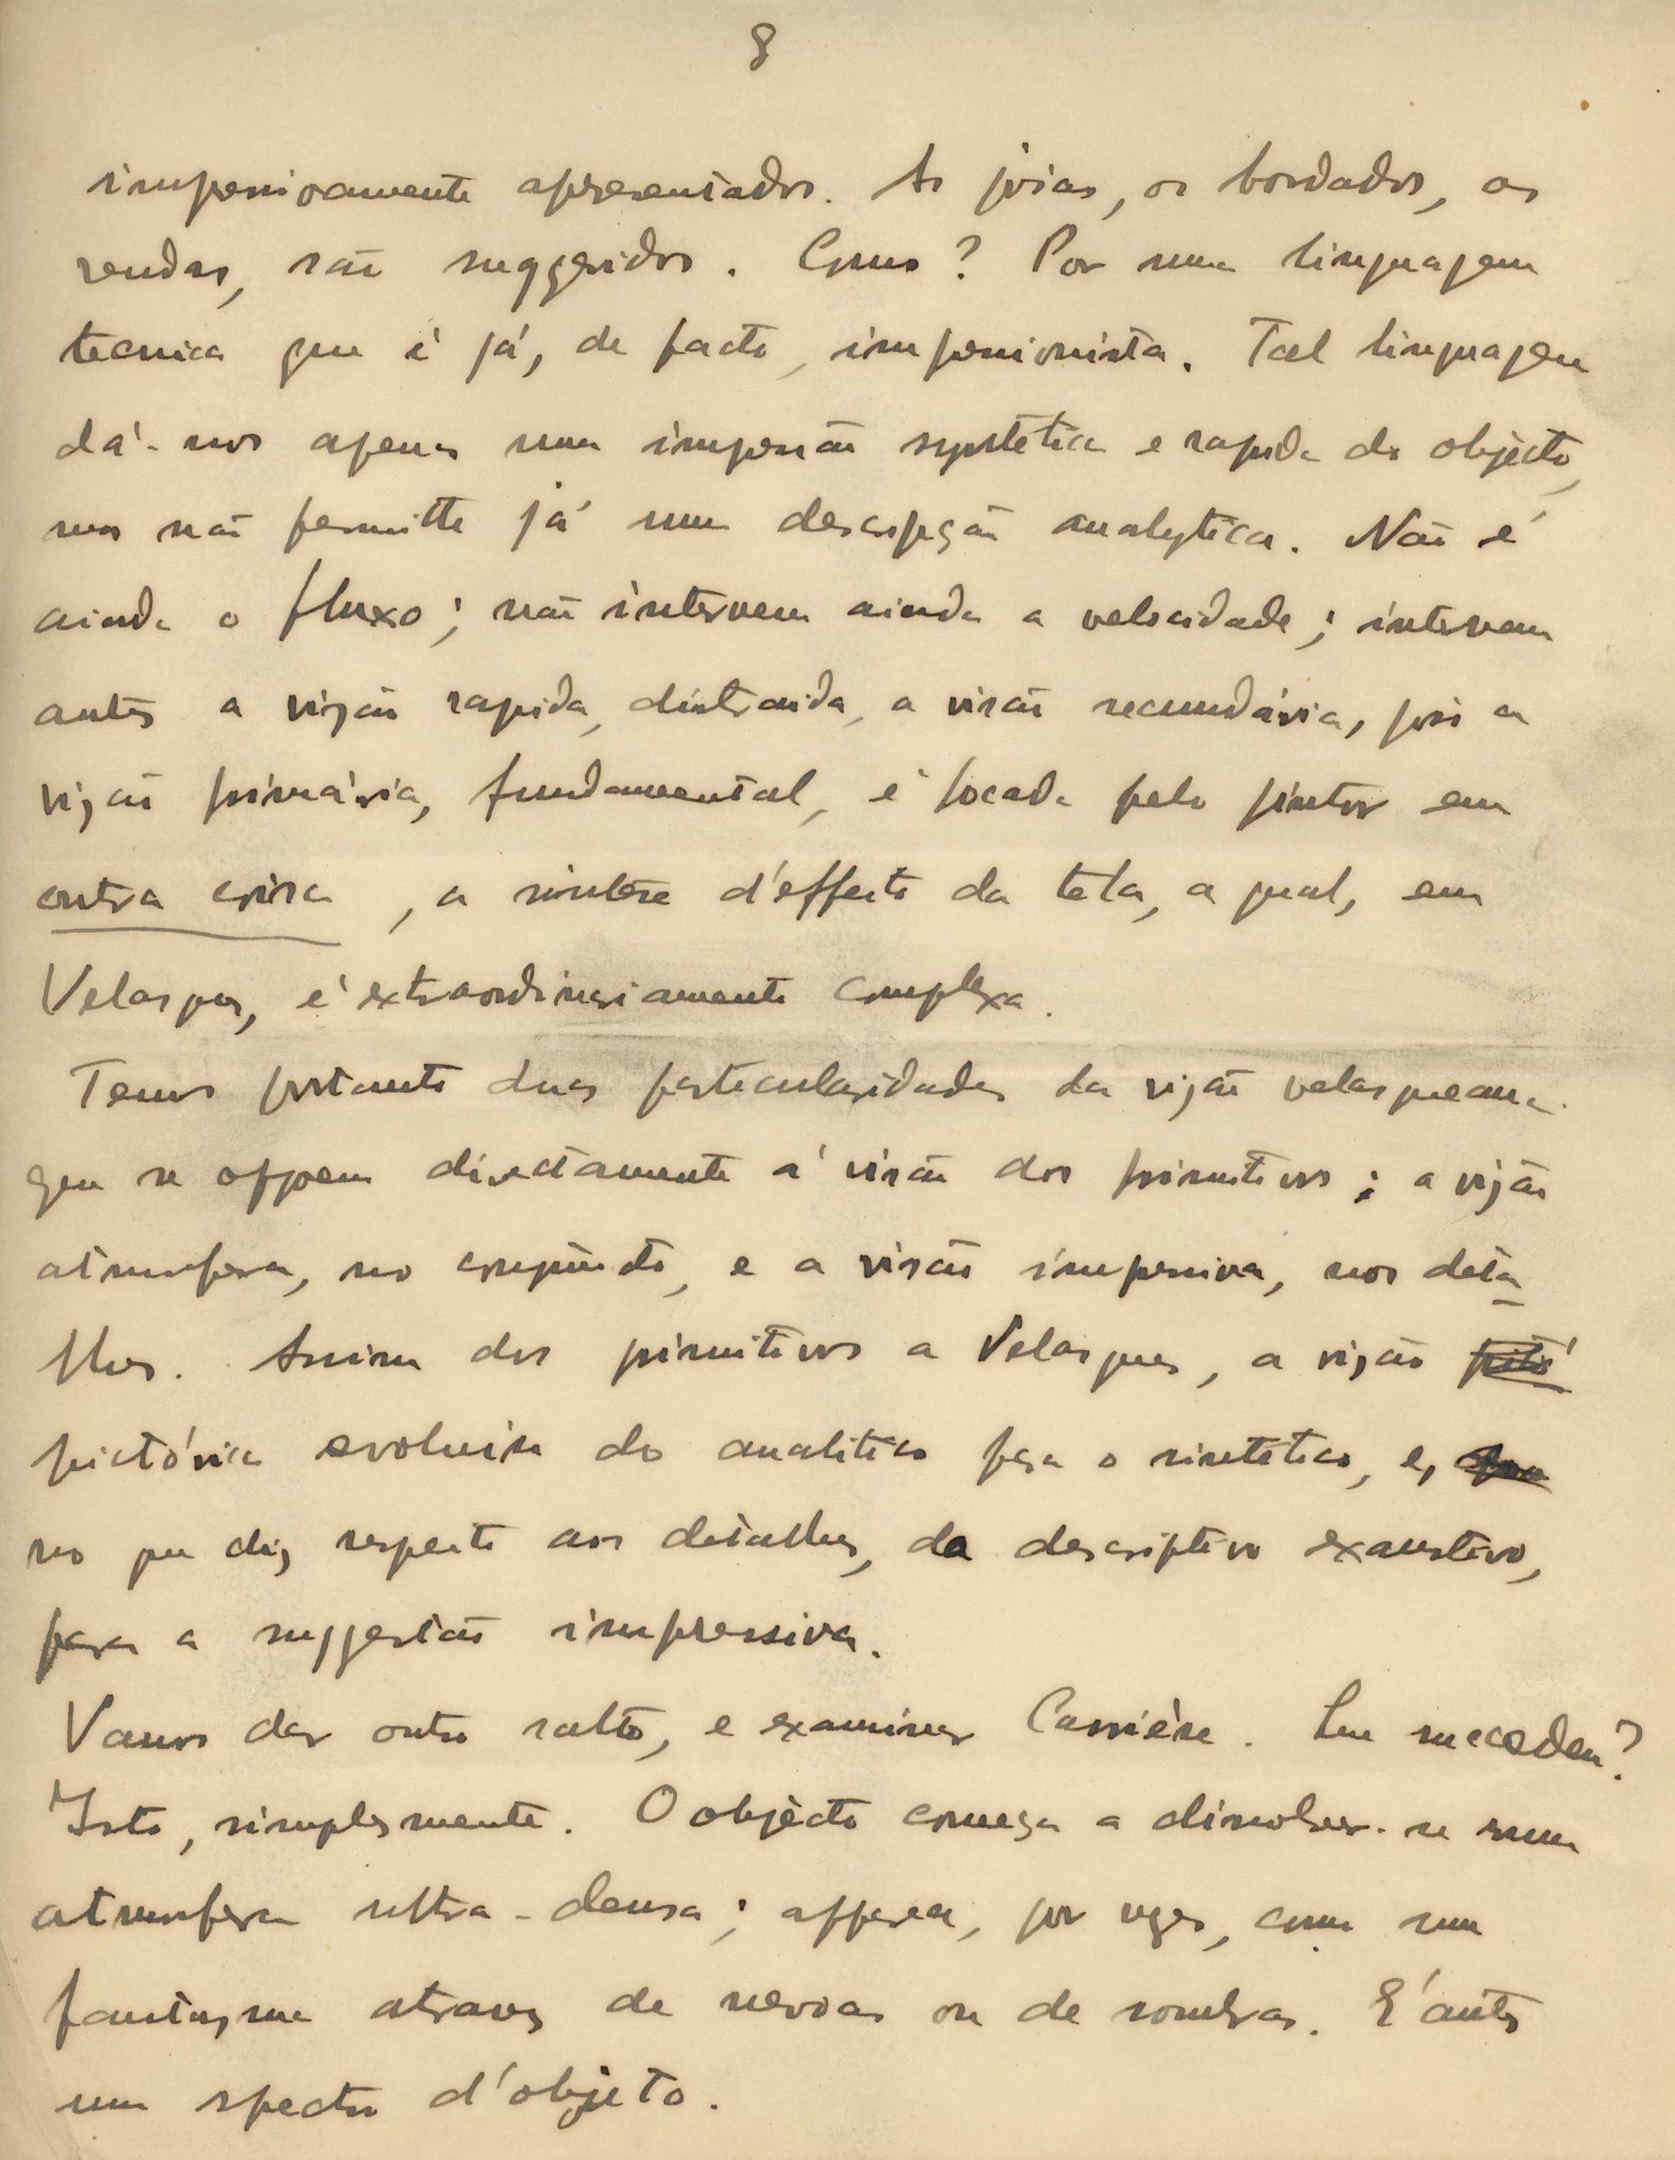 8
impressivamente apresentados. As joias, os bordados, as
rendas, são suggeridos. Como? Por uma linguagem
tecnica que é já, de facto, impressionista. Tal linguagem
dá-nos apenas uma impressão syntética e rapida do objècto,
mas não permitte já uma descripção analytica. Não é
ainda o fluxo; não intervem ainda a velocidade; intervem
antes a vizão rapida, distraida, a visão secundária, pois a
vizão primária, fundamental, é focada pelo pintor em
outra coisa, a sintese d'effeito da tela, a qual, em
Velasques, é extraordinariamente complexa.
Temos portanto duas particularidades da vizão velasqueana
que se oppoem directamente á visão dos primitivos: a vizão
atmosfera, no conjuncto, e a visão impressiva, nos deta
lhes. Assim dos primitivos a Velasques, a vizão
pictórica evoluiu do analitico para o sintetico, e,
no que diz respeito aos detalhes, da descriptivo exaustivo,
para a suggestão impressiva.
Vamos dar outro salto, e examinar Carrière. Que succedeu?
Isto, simplesmente. O objècto começa a dissolver-se numa
atmosfera ultra-densa; apparece, por vezes, como um
fantasma atravez de nevoas ou de sombras. É antes
um spectro d'objeto.